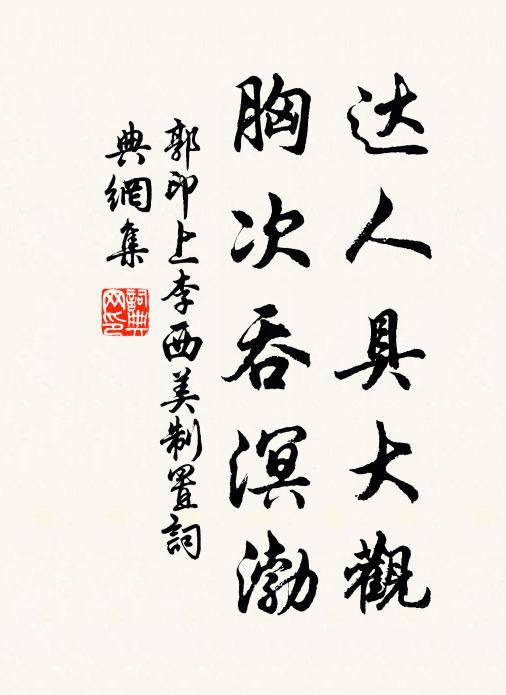 达人具大觀
胸次吞溟渤
郭印上李西美制置詞
典網集
詞典网印